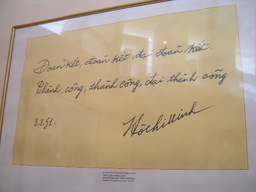 Đoàn kết, đoàn kết, đại đoàn kết.
Thành công, thành công, đại thành công
3.3.51.
Hồ Chí Minh